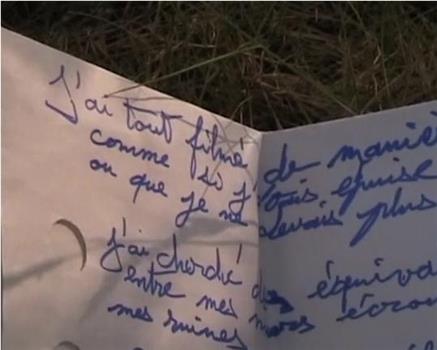 J'ai tout filmé de maniè
comme si j'étais épuisé
ou que je ne devais plus
j'ai cherché des équiva
entre mes murs écrou
mes ruines